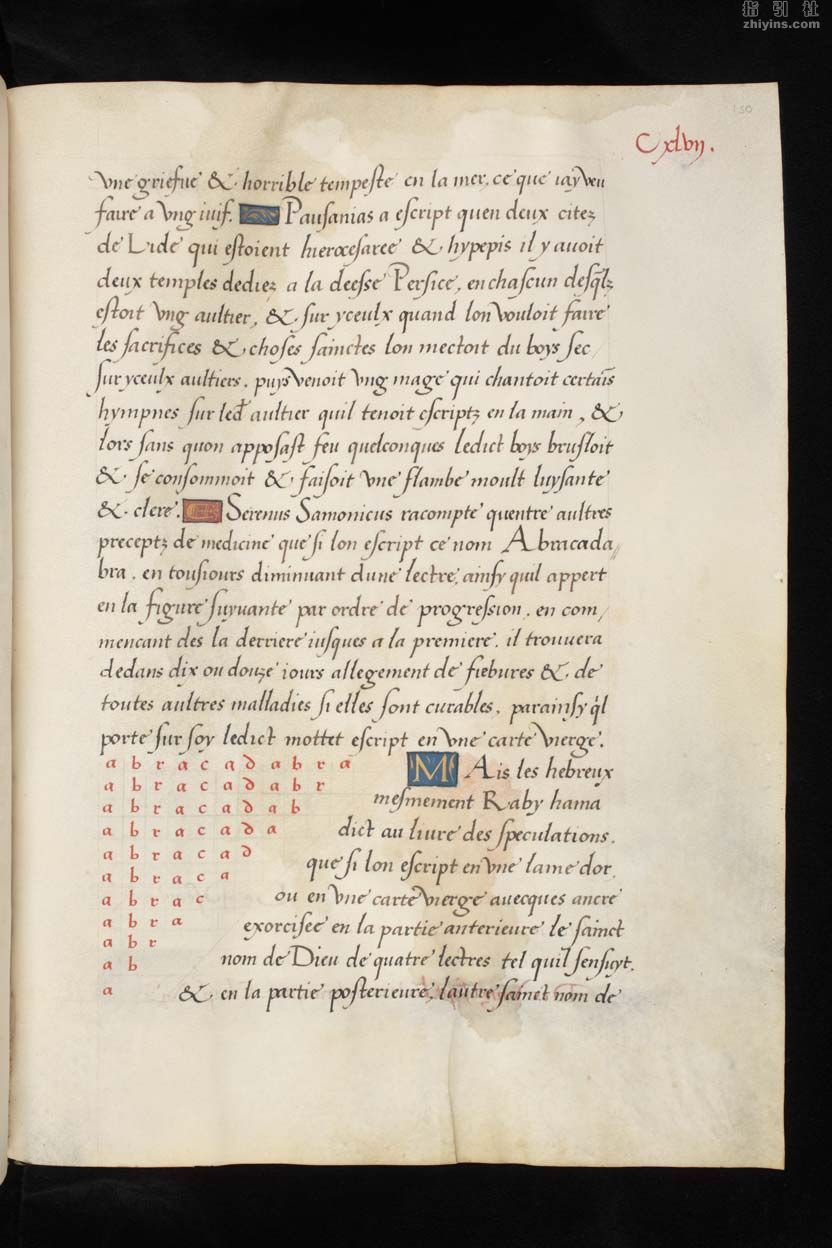 指引社
zhiyins.com
150
Cxlvij.
vne griefue & horrible tempeste en la mer, ce que iay veu
faire a vng iuif. Pausanias a escript quen deux citez
de Lide qui estoient hieræsaree & hypepis il y auoit
deux temples dediez a la deesse Persice, en chascun desq̃lz
estoit vng aultier, & sur yceulx quand lon vouloit faire
les sacrifices & choses sainctes lon mectoit du boys sec /
sur yceulx aultiers, puys venoit vng mage qui chantoit certaīs
hympnes sur led̃ aultier quil tenoit escriptz en la main, &
lors sans quon apposast feu quelconques ledict boys brusloit
& se consommoit & faisoit vne flambe moult luysante
& clere. Serenus Samonicus racompte quentre aultres
preceptz de medicine que si lon escript ce nom Abracada//
bra, en tousiours diminuant dune lectre, ainsy quil appert
en la figure suyuante par ordre de progression, en com /
mencant des la derriere iusques a la premiere, il trouuera
dedans dix ou douze iours allegement de fiebures & de
toutes aultres malladies si elles sont curables, parainsy q̃l
porte sur soy ledict mottet escript en vne carte vierge.
a b r a c a d a b r a MAis les hebreux
a b r a c a d a b r mesmement Raby hama
a b r a c a d a b
a b r a c a d a dict au liure des speculations,
a b r a c a d que si lon escript en vne lame dor,
a b r a c a
a b r a c ou en vne carte vierge auecques ancre
a b r a exorcisee en la partie anterieure le sainct
a b r
a b nom de Dieu de quatre lectres tel quil sensuyt,
a & en la partie posterieure, lautre sainct nom de